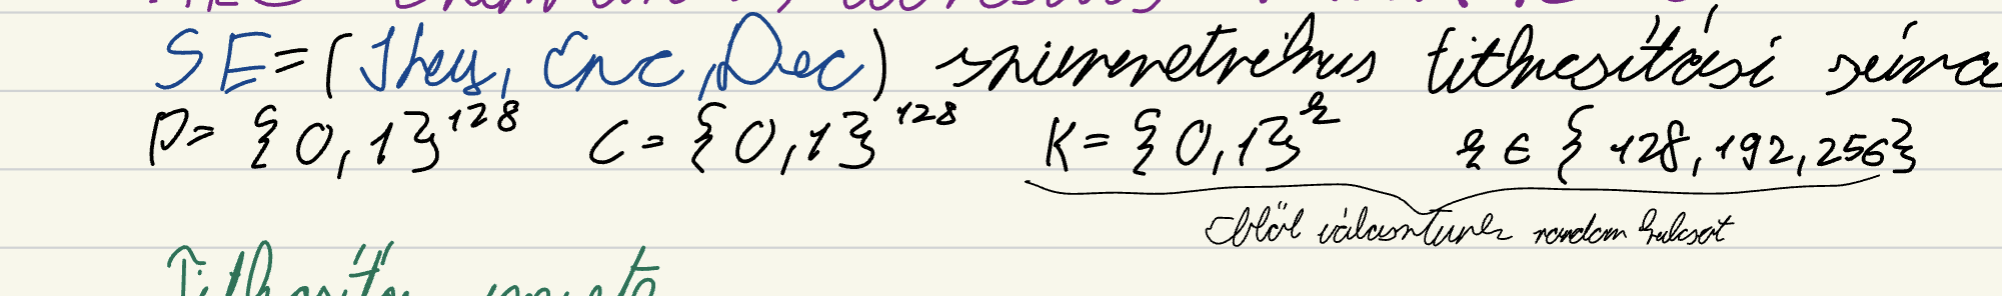 SE=(Jkey, Enc, Dec) szimmetrikus titkosítási séma
P= {0,1}^128 C = {0,1}^128 K = {0,1}^k k ∈ {128,192,256}
ebből választunk random kulcsot